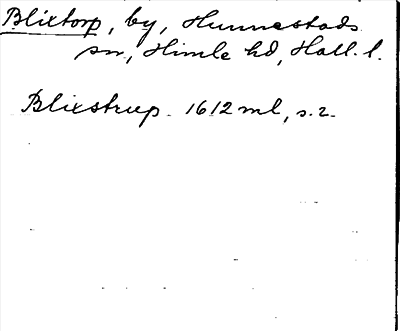 Blixtorp, by, Hunnestads
sn, Himle hd, Hall. l.
Blixstrup. 1612 ml, s. 2.